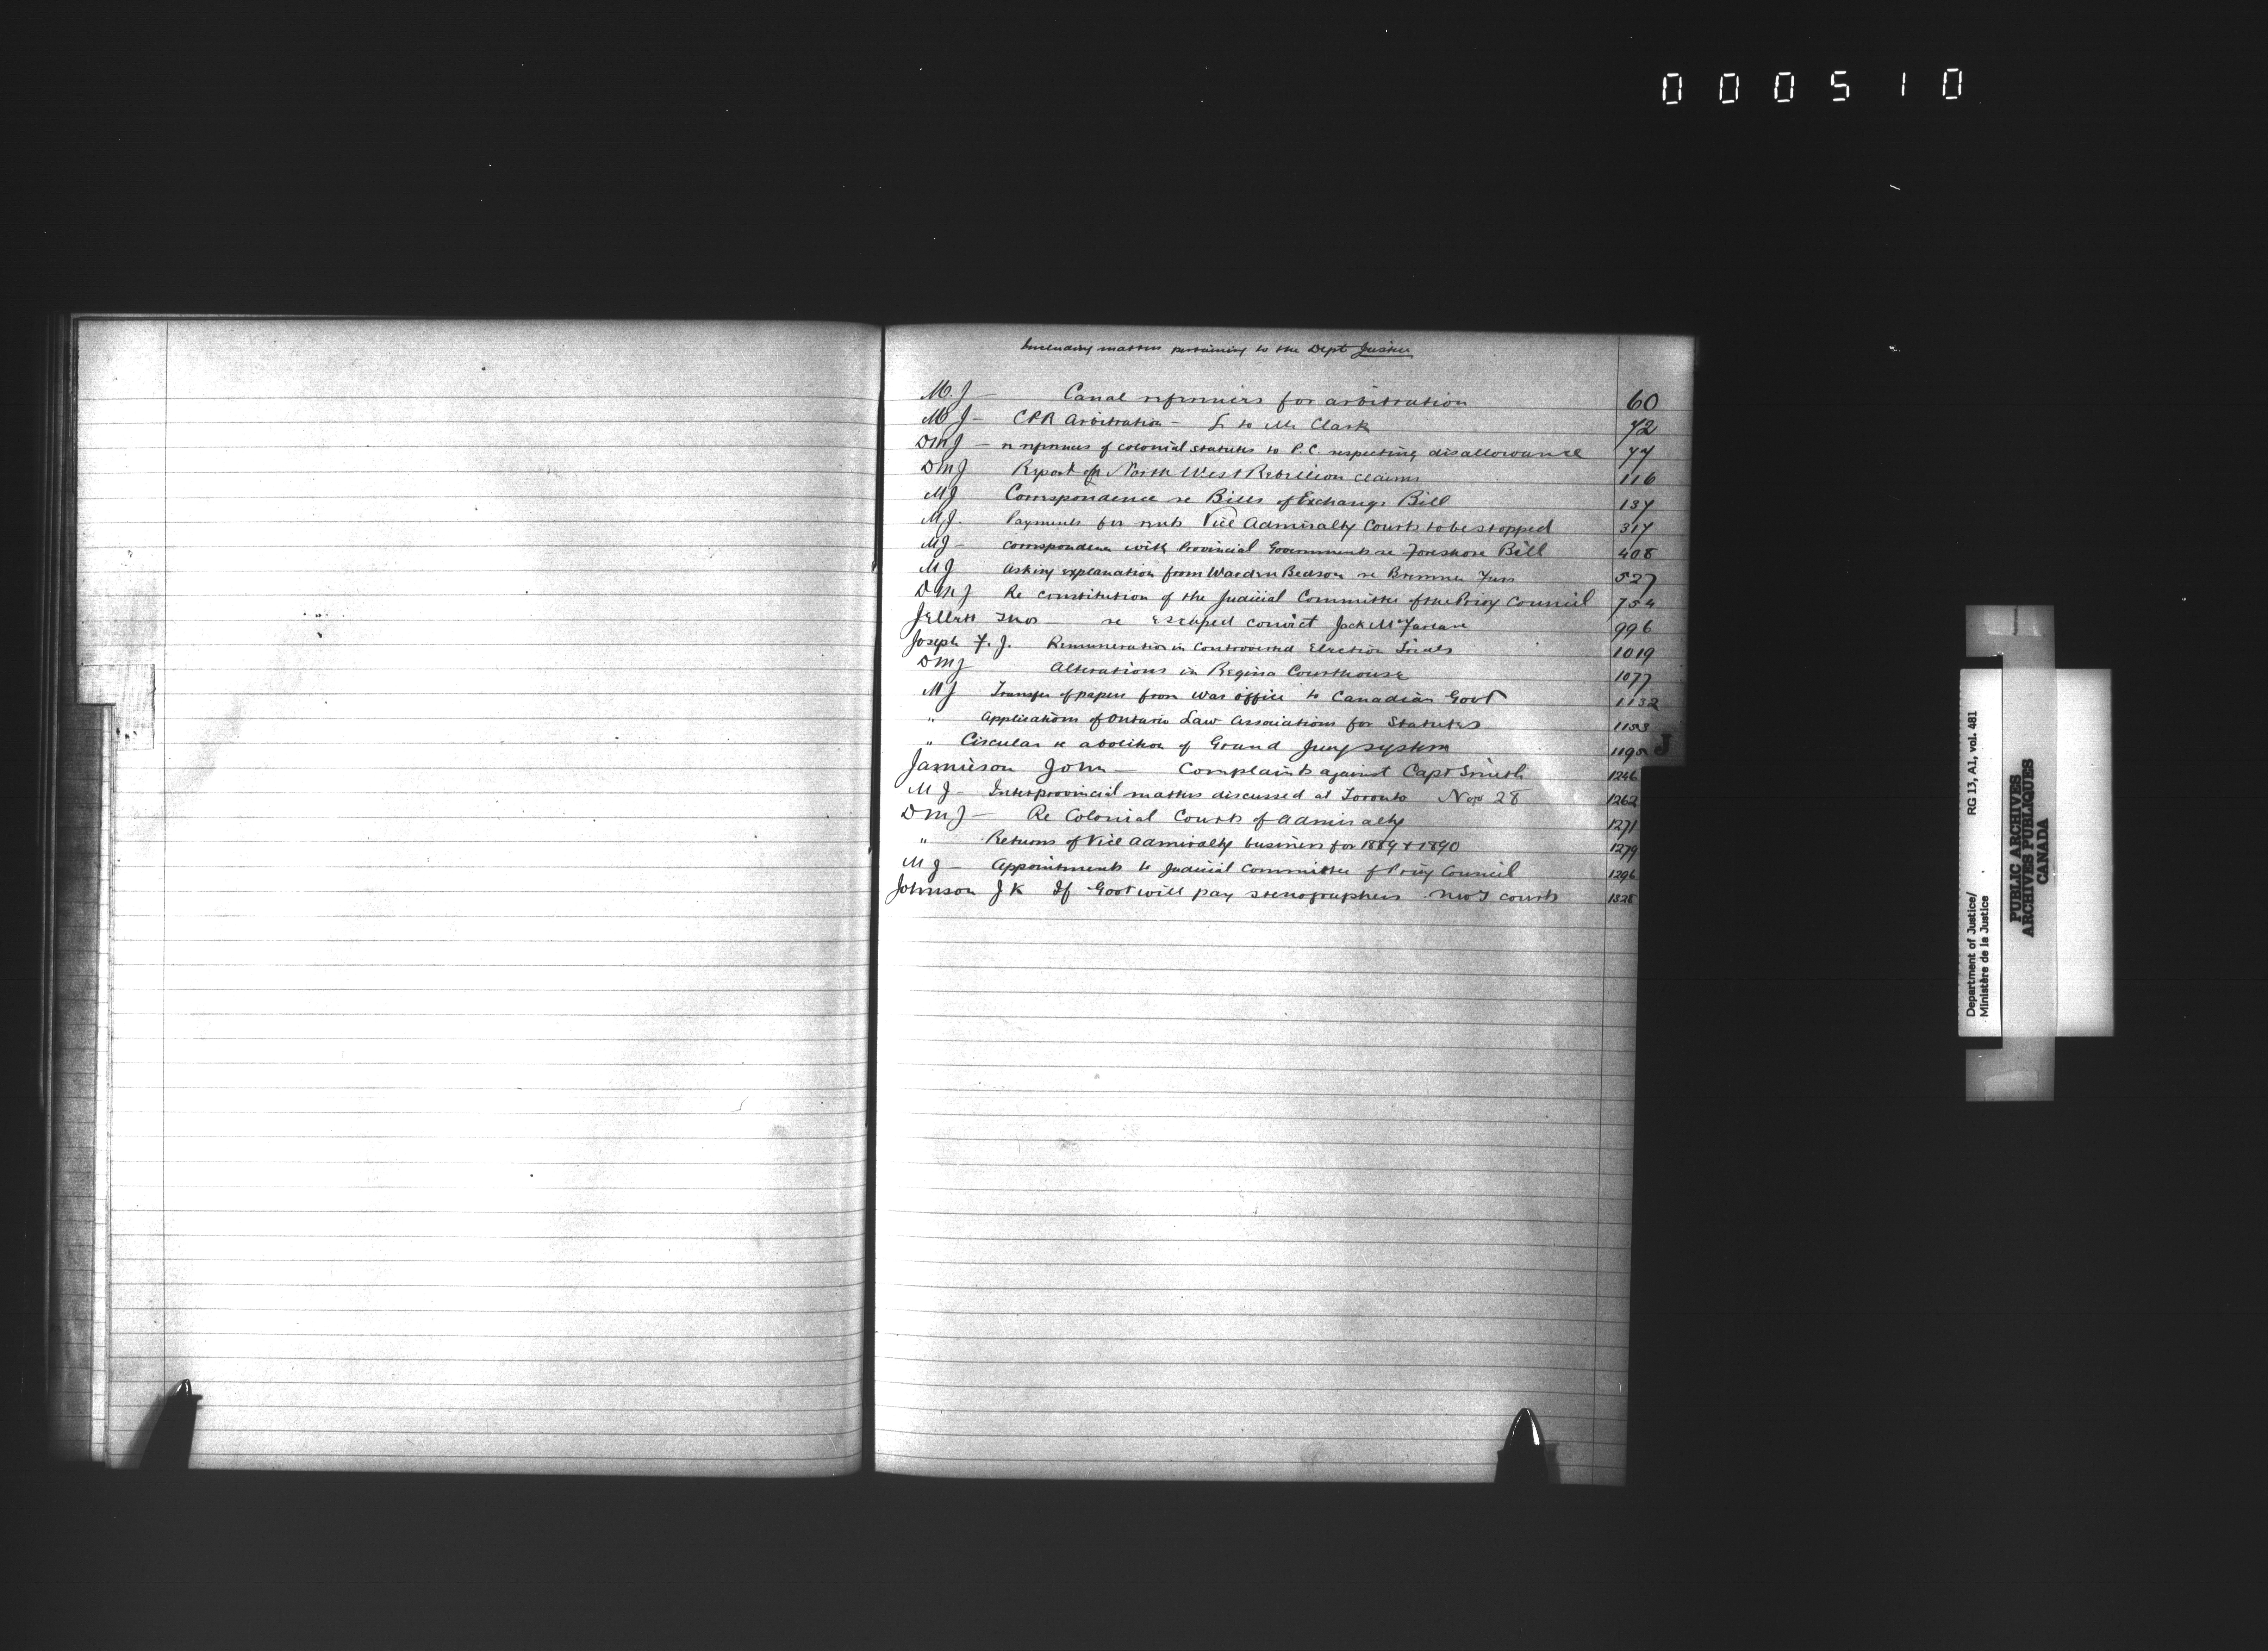 000510
Including matters pertaining to the Dept Justice
M.J — Canal references for arbitration 60
M J — CPR Arbitration — L to Mr Clark 72
DMJ — re references of colonial statutes to P.C. respecting disallowance 77
DMJ Report of North West Rebellion claims 116
MJ Correspondence re Bills of Exchange Bill 137
M.J. Payments for rents Vice Admiralty Courts to be stopped 317
MJ — Correspondence with Provincial Governments re Foreshore Bill 408
MJ Asking explanation from Warden Bedson re Bremner Furs 527
DMJ Re constitution of the Judicial Committee of the Privy Council 754
Jellett Thos — re Escaped convict Jack McFarlane 996
Joseph F. J. Remuneration in Controverted Election Trials 1019
DMJ Alterations in Regina Courthouse 1077
MJ Transfer of papers from War office to Canadian Govt 1132
" Applications of Ontario Law Associations for Statutes
" Circular re abolition of Grand Jury system 1195
J
Jamieson John — Complaints against Capt Smith 1246
M J — Interprovincial matters discussed at Toronto Nov 28 1262
DMJ — Re Colonial Courts of Admiralty 1271
" Returns of Vice Admiralty business for 1889 & 1890 1279
MJ — Appointments to Judicial Committee of Privy Council 1296
Johnson J K If Govt will pay stenographers NWT courts 1328
Department of Justice/ RG 13, A1, vol. 481
Ministère de la Justice
PUBLIC ARCHIVES
ARCHIVES PUBLIQUES
CANADA